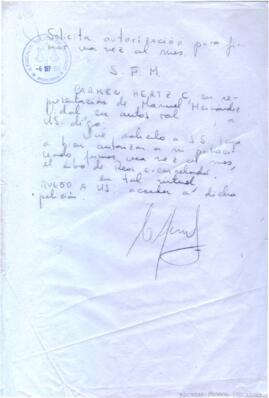 Solicita autorización para fir
mar una vez al mes.
S. F. M.
CARMEN HERTZ C. en re
presentación de Manuel Hernández
Vidal en autos rol , a
US. digo:
Que solicito a S.S. tenga
a bien autorizar a mi patroci
nado firmar una vez al mes,
el libro de Reos excarcelados.
en tal virtud,
RUEGO A US. acceder a dicha
petición.